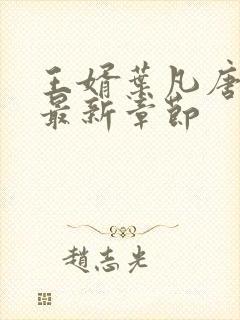 王婿葉凡唐
最新章節
趙志光